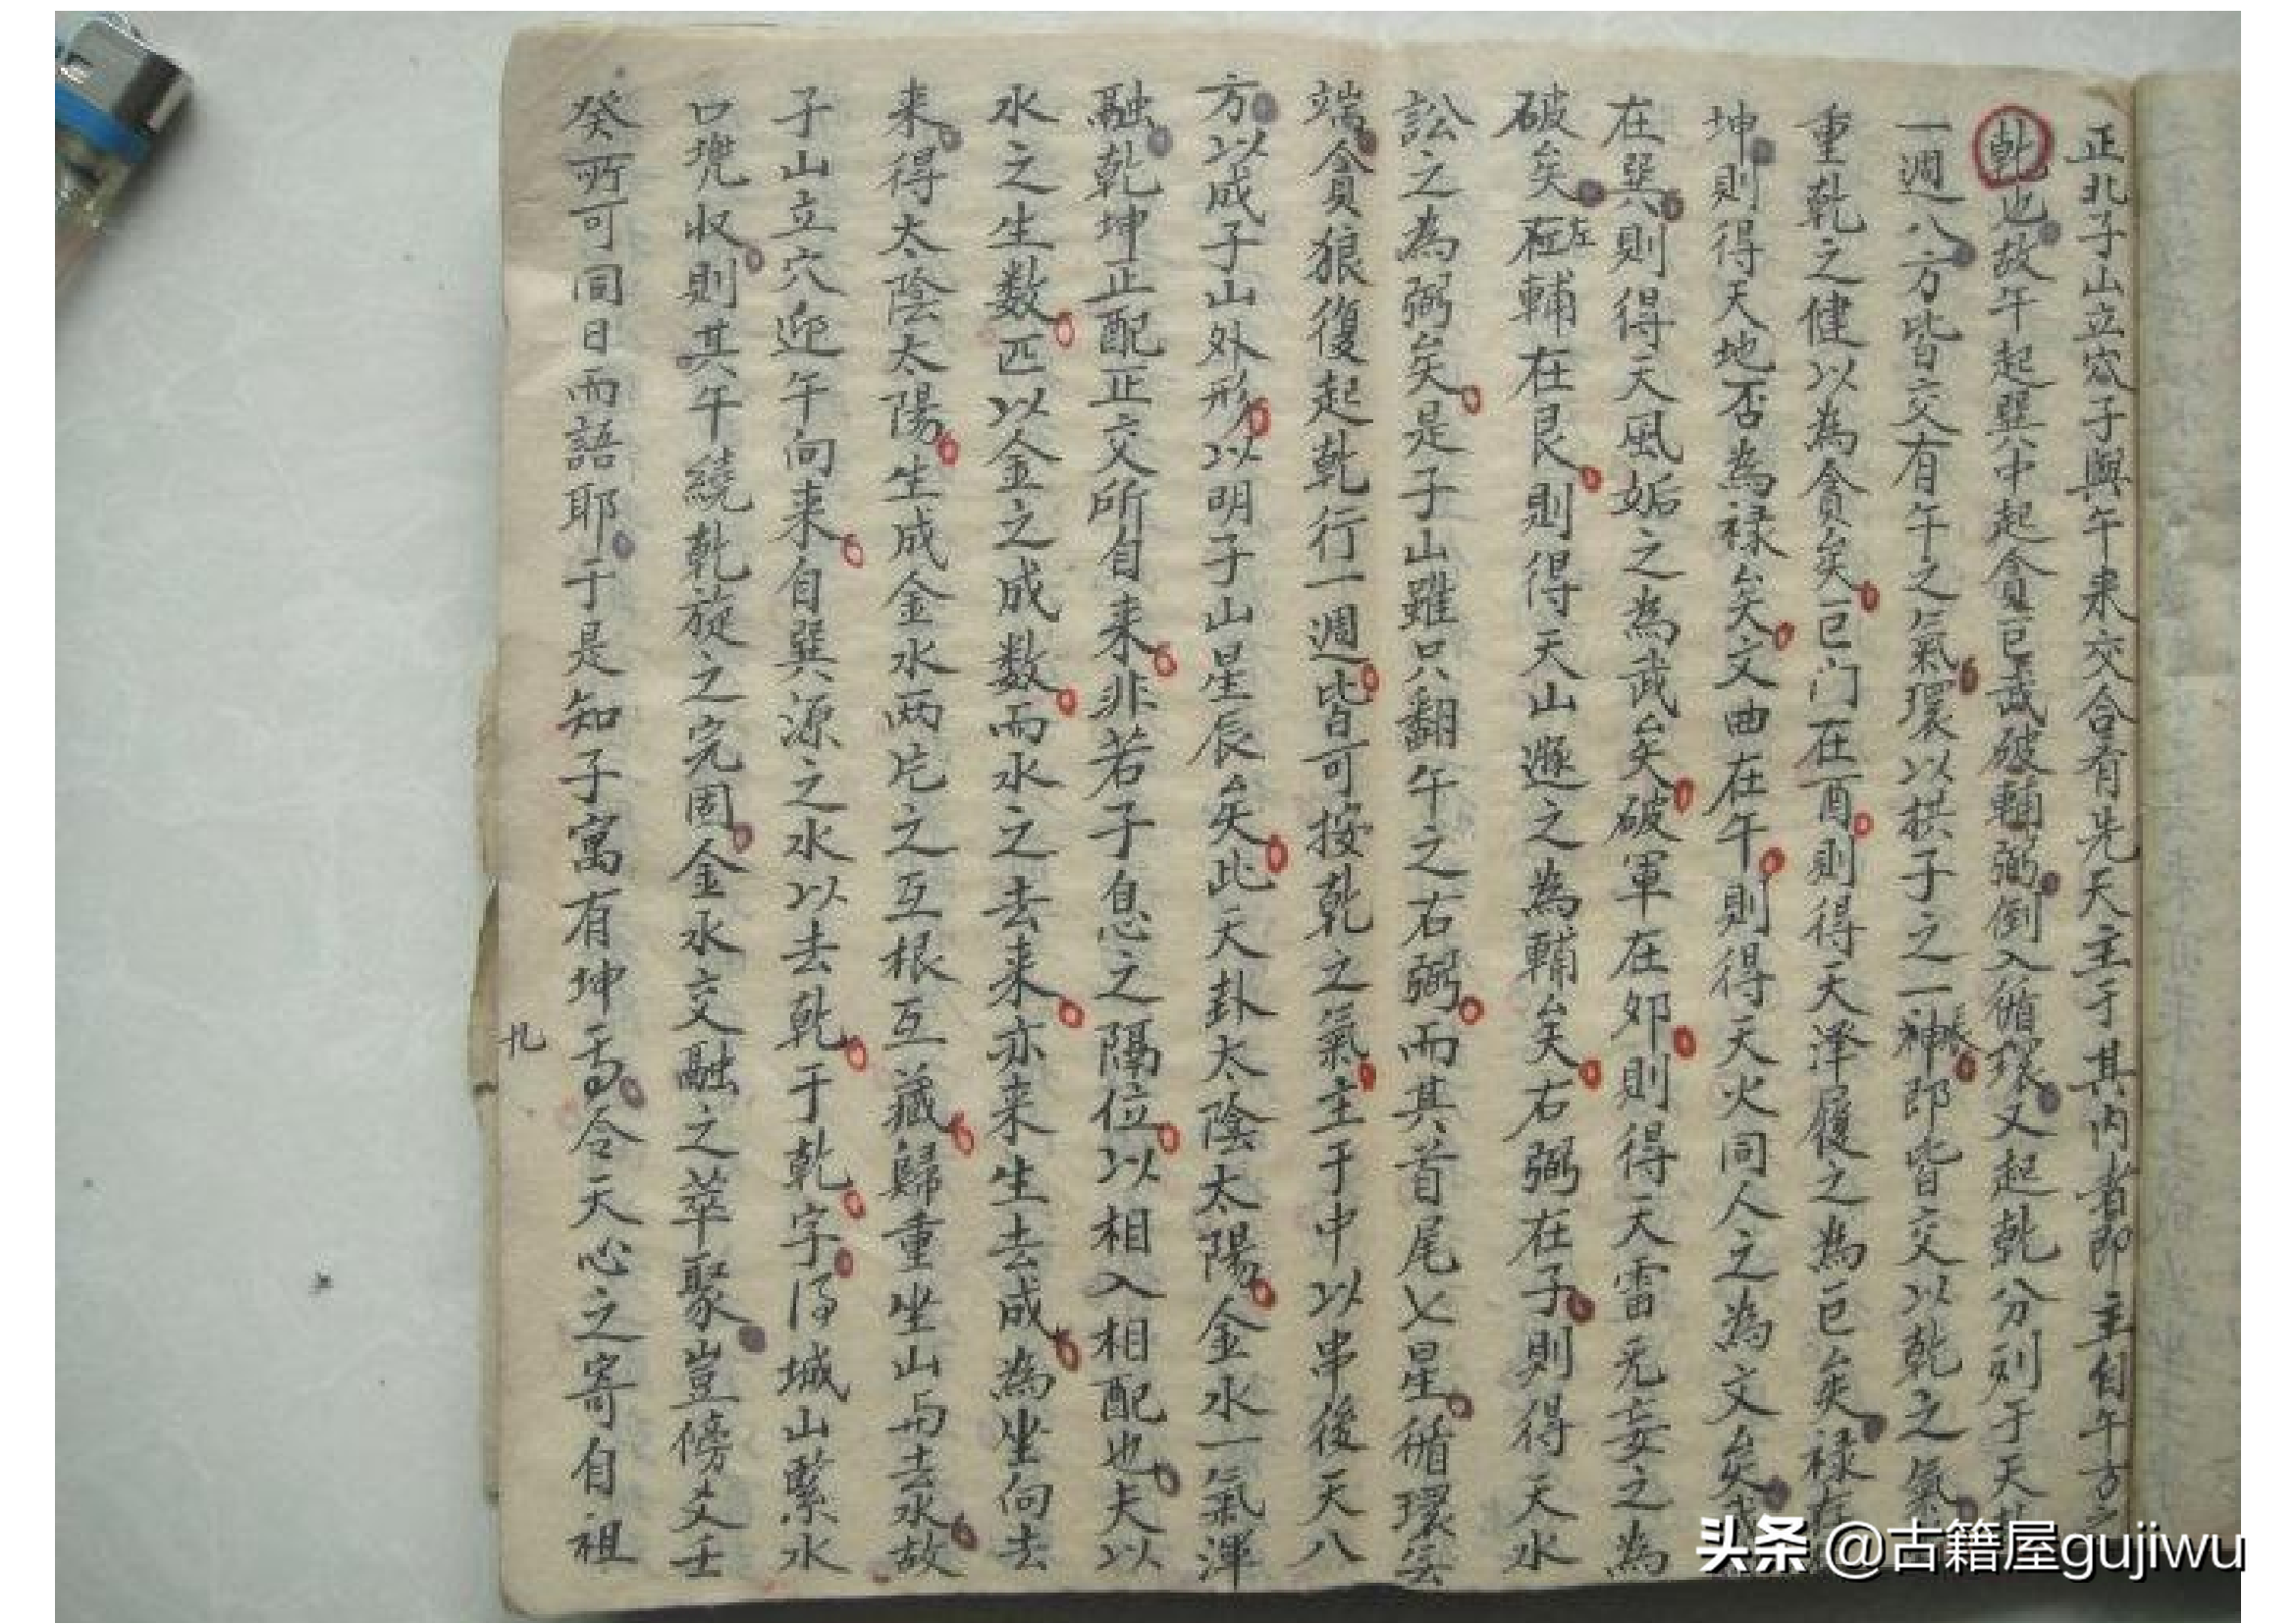 正北子山立穴子與午来交合有先天主于其内者即主自午方之
乾也故午起巽中起貪巨武破輔弼倒入循環又起乾分列于天
一週八方皆交有午之氣環以拱子之一神即皆交以乾之氣
重乾之健以為貪矣巨门在酉則得天澤履之為巨矣禄在
坤則得天地否為禄矣文曲在午則得天火同人之為文矣武
在巽則得天風姤之為武矣破軍在卯則得天雷无妄之為
破矣左輔在艮則得天山遯之為輔矣右弼在子則得天水
訟之為弼矣是子山雖只翻午之右弼而其首尾七星循環無
端貪狼復起乾行一週皆可按乾之氣主于中以串後天八
方以成子山外形以明子山星辰矣此天卦太陰太陽金水一氣渾
融乾坤正配正交所自来非若子息之隔位以相入相配也夫以
水之生数匹以金之成数而水之去来亦来生去成為坐向去
来得太陰太陽生成金水两片之互根互藏歸重坐山与去水故
子山立穴迎午向来自巽源之水以去乾于乾字得城山緊水
口兜收則其午繞乾旋之完固金水交融之萃聚豈傍爻壬
癸所可同日而語耶于是知子寓有坤焉令天心之寄自祖
头条 @古籍屋gujiwu